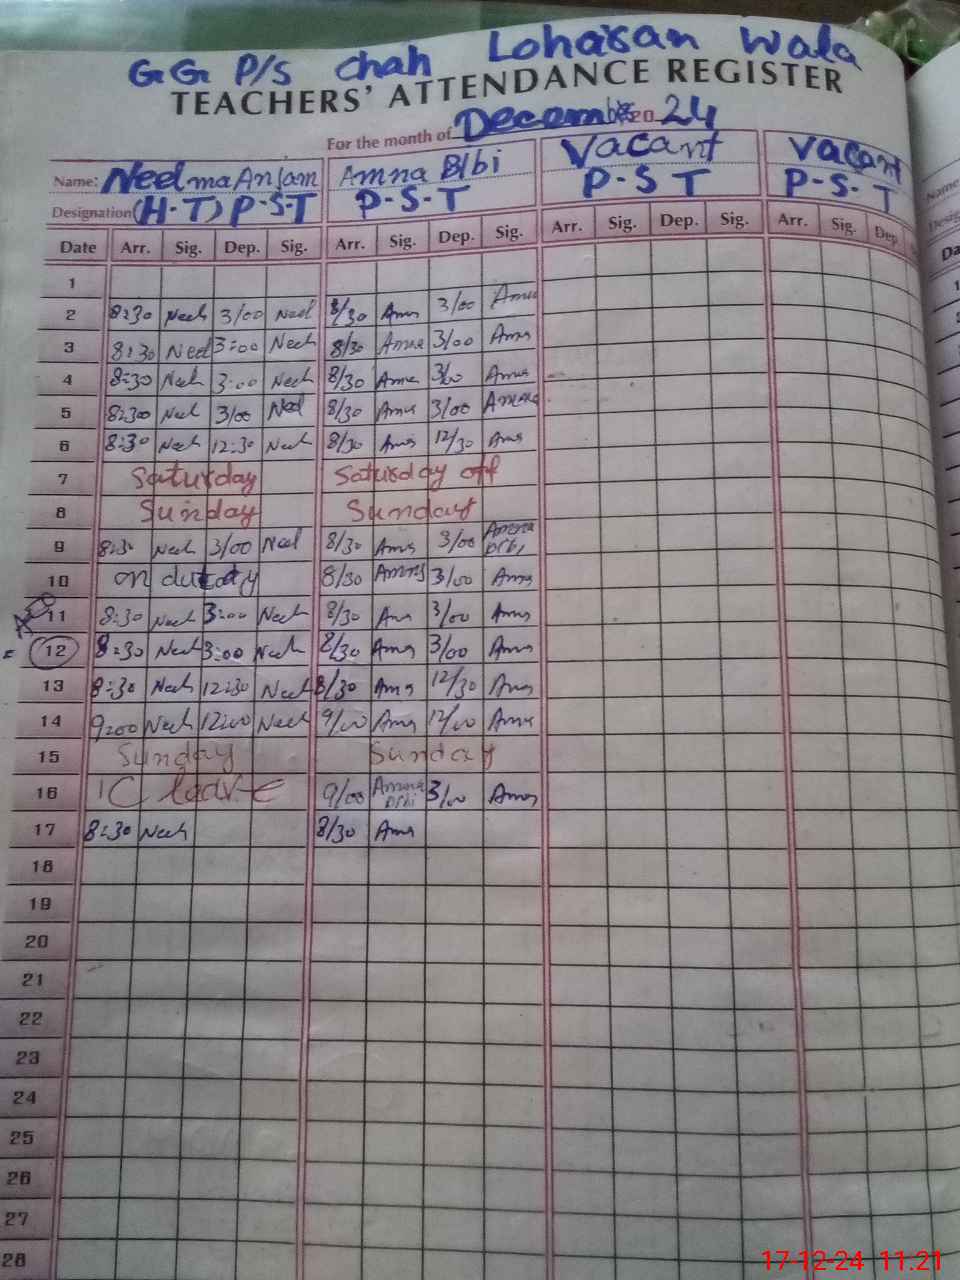 GG P/S Chah Loharan Wala
TEACHERS' ATTENDANCE REGISTER
For the month of December 20 24
Name: Neelma Anjam Amna Bibi Vacant Vacant
Designation (H-T) P-S-T P-S-T P-S T P-S-T
Date Arr. Sig. Dep. Sig. Arr. Sig. Dep. Sig. Arr. Sig. Dep. Sig. Arr. Sig. Dep
1
2 8:30 Neel 3/00 Neel 8/30 Amna 3/00 Amna
3 8:30 Neel 3:00 Neel 8/30 Amna 3/00 Amna
4 8:30 Neel 3:00 Neel 8/30 Amna 3/00 Amna
5 8:300 Neel 3/00 Neel 8/30 Amna 3/00 Amna
6 8:30 Neel 12:30 Neel 8/30 Amna 12/30 Amna
7 Saturday Saturday off
8 Sunday Sunday
9 8:30 Neel 3/00 Neel 8/30 Amna 3/00 Amna Bibi
10 on dutaty 8/30 Amna 3/00 Amna
11 8:30 Neel 3:00 Neel 8/30 Amna 3/00 Amna
12 8:30 Neel 3:00 Neel 8/30 Amna 3/00 Amna
13 8:30 Neel 12:30 Neel 8/30 Amna 12/30 Amna
14 9:00 Neel 12:00 Neel 9/00 Amna 12/00 Amna
15 Sunday Sunday
16 1C leave 9/00 Amna Bibi 3/00 Amna
17 8:30 Neel 8/30 Amna
18
19
20
21
22
23
24
25
26
27
28
17-12-24 11:21